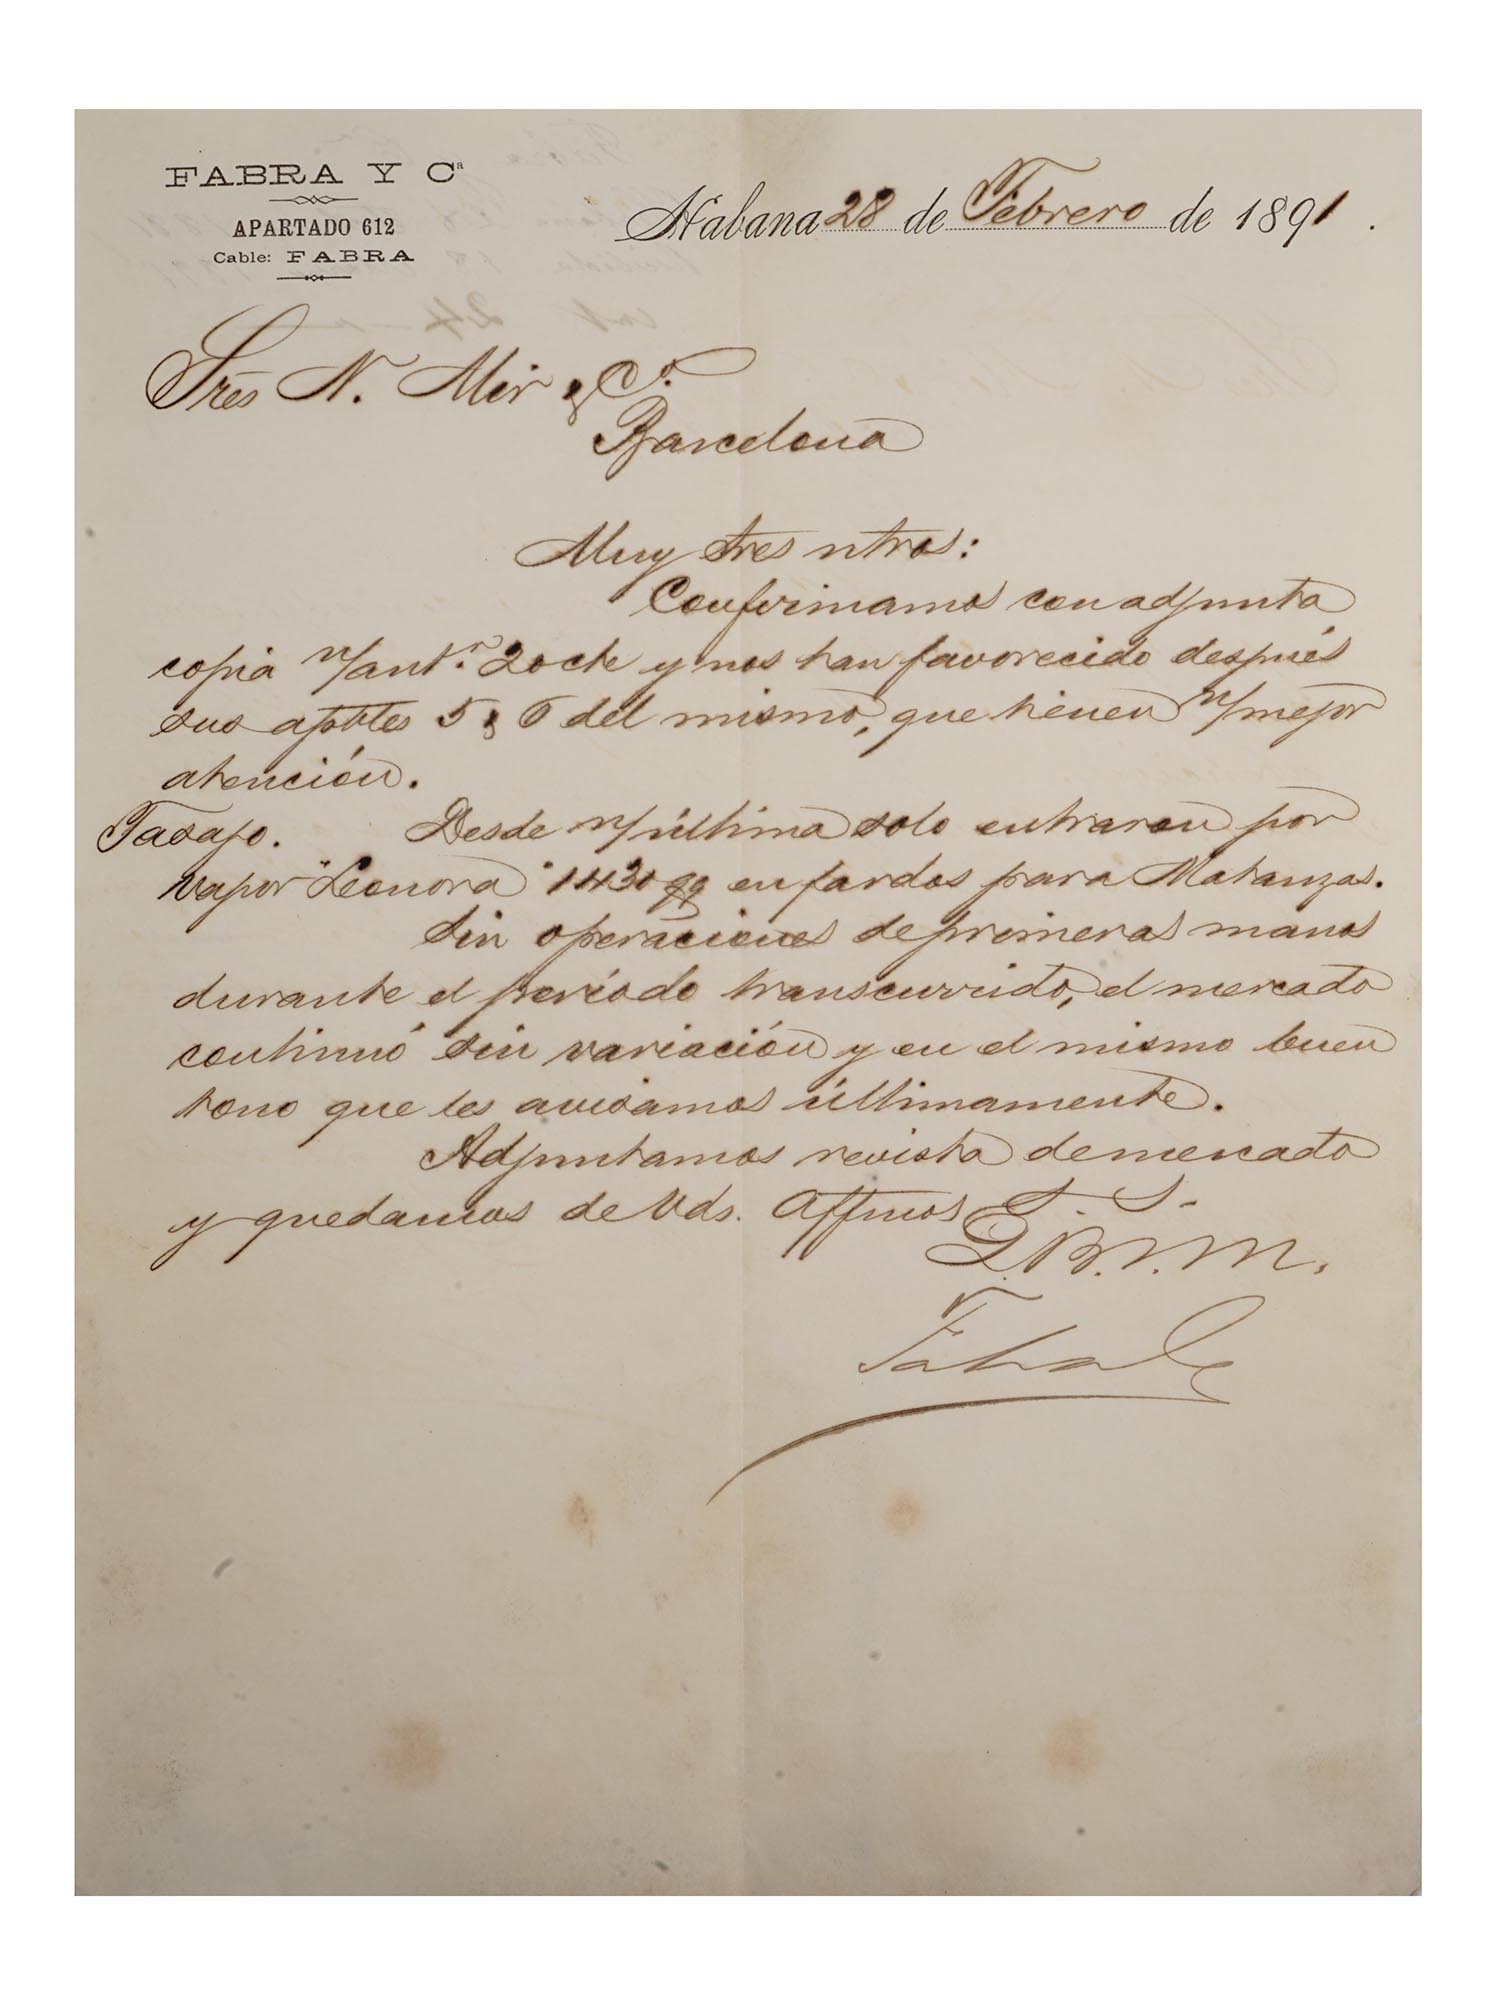 FABRA Y Cª
APARTADO 612
Cable: FABRA
Habana 28 de Febrero de 1891.
Sres N. Mir & Cª.
Barcelona
Muy sres ntros:
Confirmamos con adjunta
copia n/antr. 20 cte y nos han favorecido después
sus aptbles 5 & 6 del mismo, que tienen n/mejor
atención.
Tasajo. Desde n/última solo entraron por
vapor "Leonora" 1430 qq en fardos para Matanzas.
Sin operaciones de primeras manos
durante el período transcurrido, el mercado
continuó sin variación y en el mismo buen
tono que les avisamos últimamente.
Adjuntamos revista de mercado
y quedamos de Vds. affmos S. S.
Q.B.S.M.